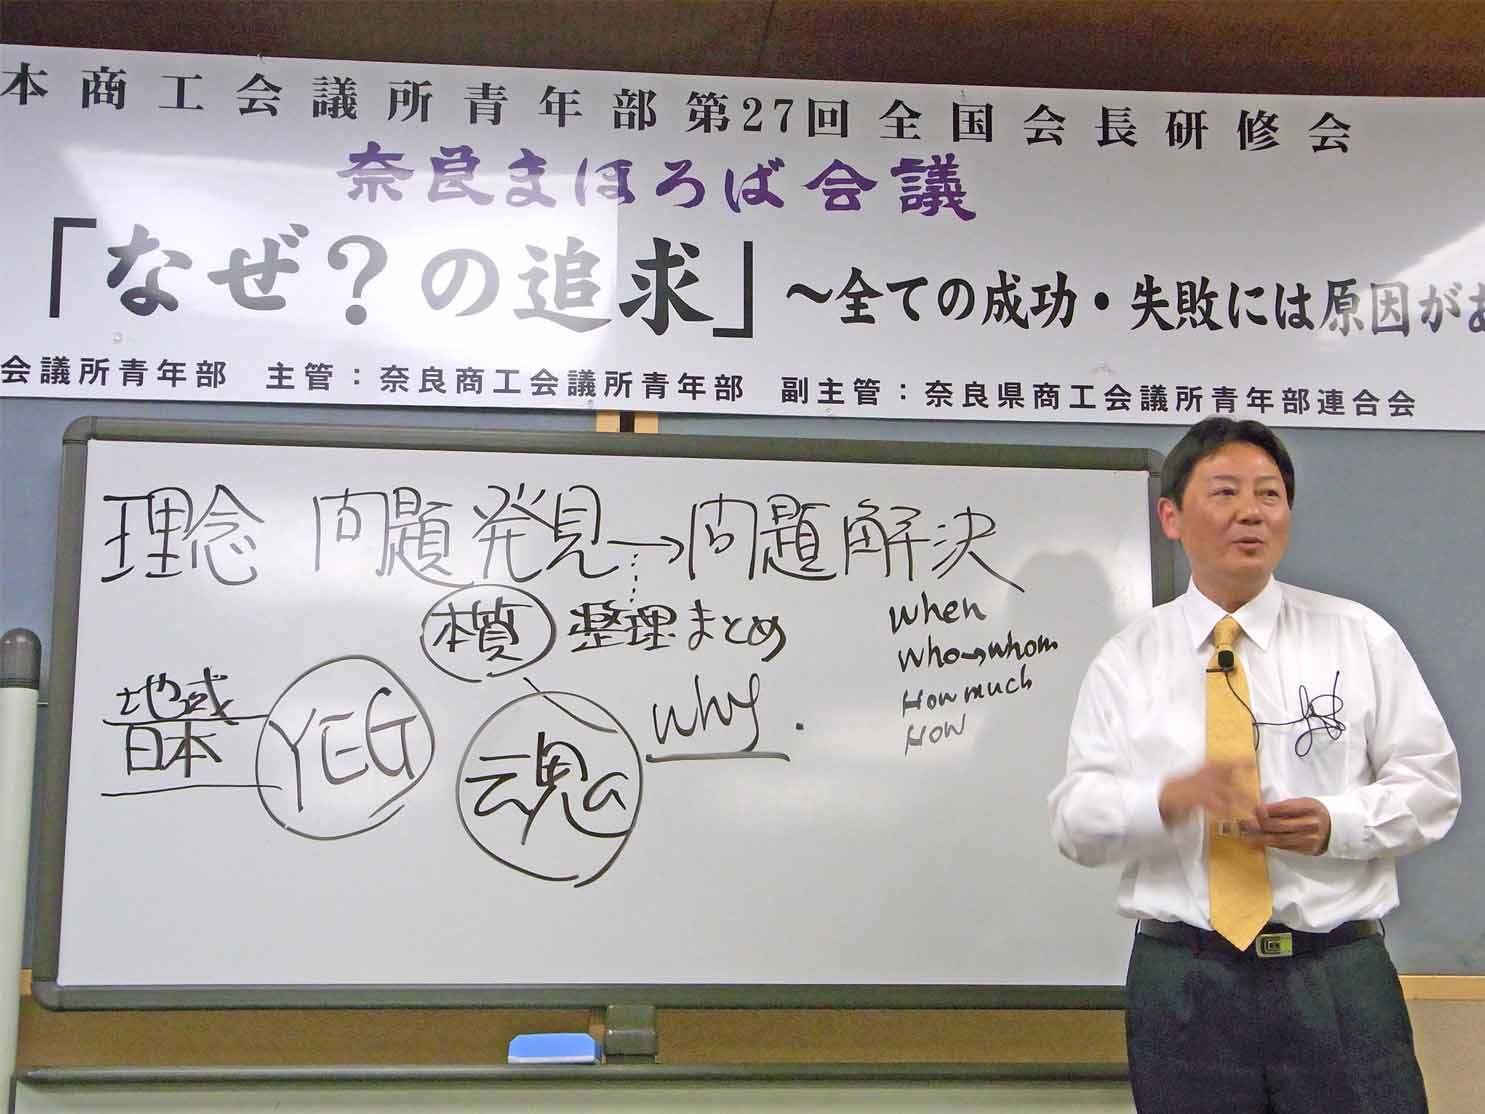 本商工会議所青年部第27回全国会長研修会
奈良まほろば会議
「なぜ?の追求」~全ての成功・失敗には原因があ
会議所青年部 主管：奈良商工会議所青年部 副主管：奈良県商工会議所青年部連合会
理念 問題発見→問題解決
本質 整理まとめ
when
who→whom
How much
How
地域
日本
YEG
魂
why.